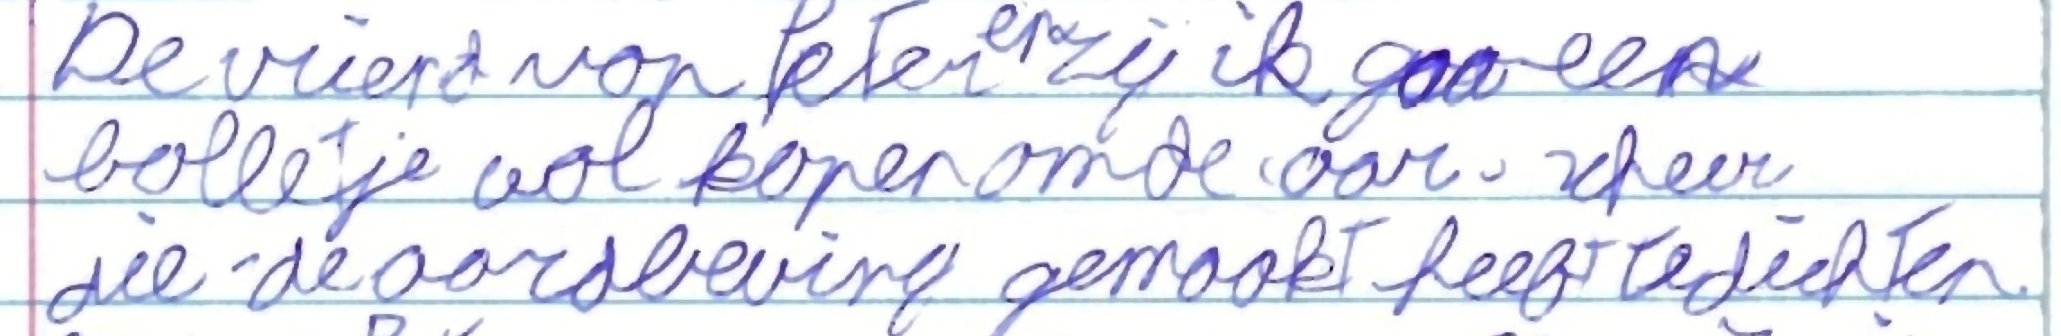 De vriend van Peter en zij ik gaa een
bolletje wol kopen om de aar. scheur
die de aardbeving gemaakt heeft te dichten.